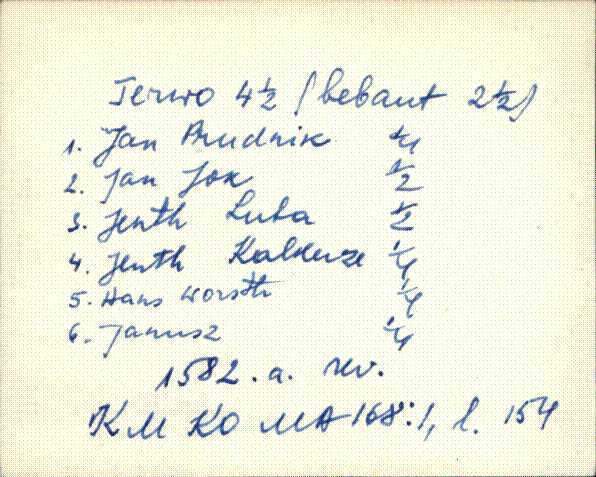 Terwo 4 1/2 (bebaut 2 1/2)
1. Jan Prudnik 1/4
2. Jan Jox 1/2
3. Jenth Luba 1/2
4. Jenth Kalkunze 1/4
5. Hans Worsth 1/4
6. Janusz 1/4
1582. a. rev.
KM KO MA 168:1, l. 154